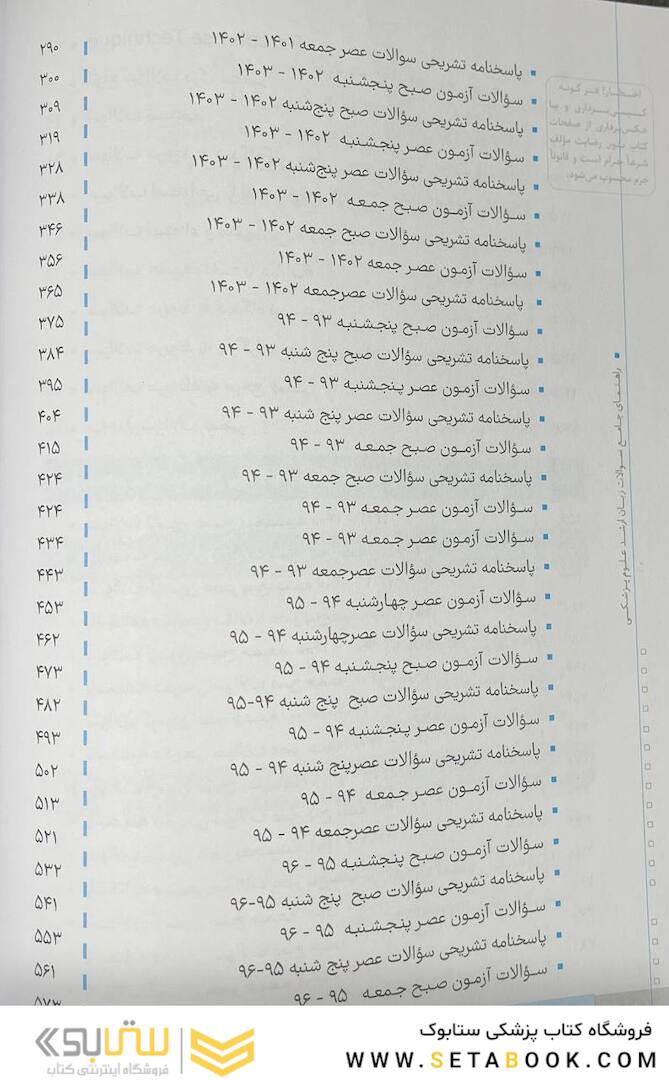 پاسخنامه تشریحی سوالات عصر جمعه ۱۴۰۱ - ۱۴۰۲ ۲۹۰
سؤالات آزمون صبح پنجشنبه ۱۴۰۲ - ۱۴۰۳ ۳۰۰
پاسخنامه تشریحی سؤالات صبح پنج‌شنبه ۱۴۰۲ - ۱۴۰۳ ۳۰۹
سؤالات آزمون عصر پنجشنبه ۱۴۰۲ - ۱۴۰۳ ۳۱۹
پاسخنامه تشریحی سؤالات عصر پنج‌شنبه ۱۴۰۲ - ۱۴۰۳ ۳۲۸
سؤالات آزمون صبح جمعه ۱۴۰۲ - ۱۴۰۳ ۳۳۸
پاسخنامه تشریحی سؤالات صبح جمعه ۱۴۰۲ - ۱۴۰۳ ۳۴۶
سؤالات آزمون عصر جمعه ۱۴۰۲ - ۱۴۰۳ ۳۵۶
پاسخنامه تشریحی سؤالات عصرجمعه ۱۴۰۲ - ۱۴۰۳ ۳۶۵
سؤالات آزمون صبح پنجشنبه ۹۳ - ۹۴ ۳۷۵
پاسخنامه تشریحی سؤالات صبح پنج شنبه ۹۳ - ۹۴ ۳۸۴
سؤالات آزمون عصر پنجشنبه ۹۳ - ۹۴ ۳۹۵
پاسخنامه تشریحی سؤالات عصر پنج شنبه ۹۳ - ۹۴ ۴۰۴
سؤالات آزمون صبح جمعه ۹۳ - ۹۴ ۴۱۵
پاسخنامه تشریحی سؤالات صبح جمعه ۹۳ - ۹۴ ۴۲۴
سؤالات آزمون عصر جمعه ۹۳ - ۹۴ ۴۲۴
سؤالات آزمون عصر جمعه ۹۳ - ۹۴ ۴۳۴
پاسخنامه تشریحی سؤالات عصرجمعه ۹۳ - ۹۴ ۴۴۳
سؤالات آزمون عصر چهارشنبه ۹۴ - ۹۵ ۴۵۳
پاسخنامه تشریحی سؤالات عصرچهارشنبه ۹۴ - ۹۵ ۴۶۲
سؤالات آزمون صبح پنجشنبه ۹۴ - ۹۵ ۴۷۳
پاسخنامه تشریحی سؤالات صبح پنج شنبه ۹۴-۹۵ ۴۸۲
سؤالات آزمون عصر پنجشنبه ۹۴ - ۹۵ ۴۹۳
پاسخنامه تشریحی سؤالات عصرپنج شنبه ۹۴ - ۹۵ ۵۰۲
سؤالات آزمون عصر جمعه ۹۴ - ۹۵ ۵۱۳
پاسخنامه تشریحی سؤالات عصرجمعه ۹۴ - ۹۵ ۵۲۱
سؤالات آزمون صبح پنجشنبه ۹۵ - ۹۶ ۵۳۲
پاسخنامه تشریحی سؤالات صبح پنج شنبه ۹۵-۹۶ ۵۴۱
سؤالات آزمون عصر پنجشنبه ۹۵ - ۹۶ ۵۵۳
پاسخنامه تشریحی سؤالات عصر پنج شنبه ۹۵-۹۶ ۵۶۱
سؤالات آزمون صبح جمعه ۹۵ - ۹۶ ۵۷۳
اخطار! هر گونه
کپی‌برداری و یا
عکس‌برداری از صفحات
کتاب بدون رضایت مؤلف
شرعاً حرام است و قانوناً
جرم محسوب می‌شود.
راهنمای جامع سوالات زبان ارشد علوم پزشکی
فروشگاه کتاب پزشکی ستابوک
WWW.SETABOOK.COM
ستابوک
فروشگاه اینترنتی کتاب